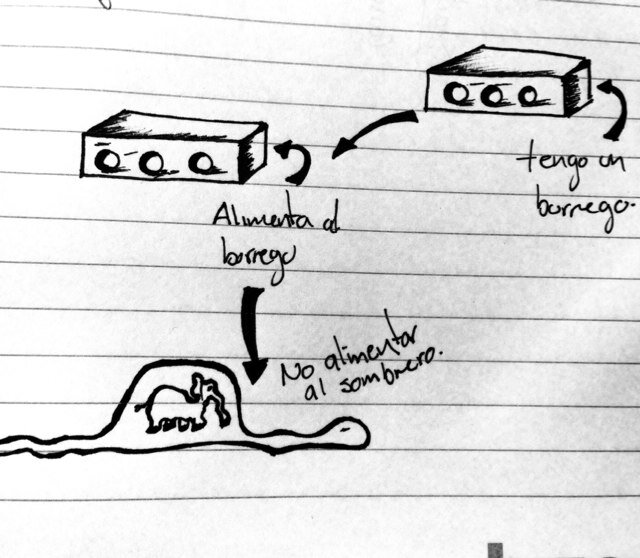 tengo un
borrego.
Alimenta al
borrego
No alimentar
al sombrero.